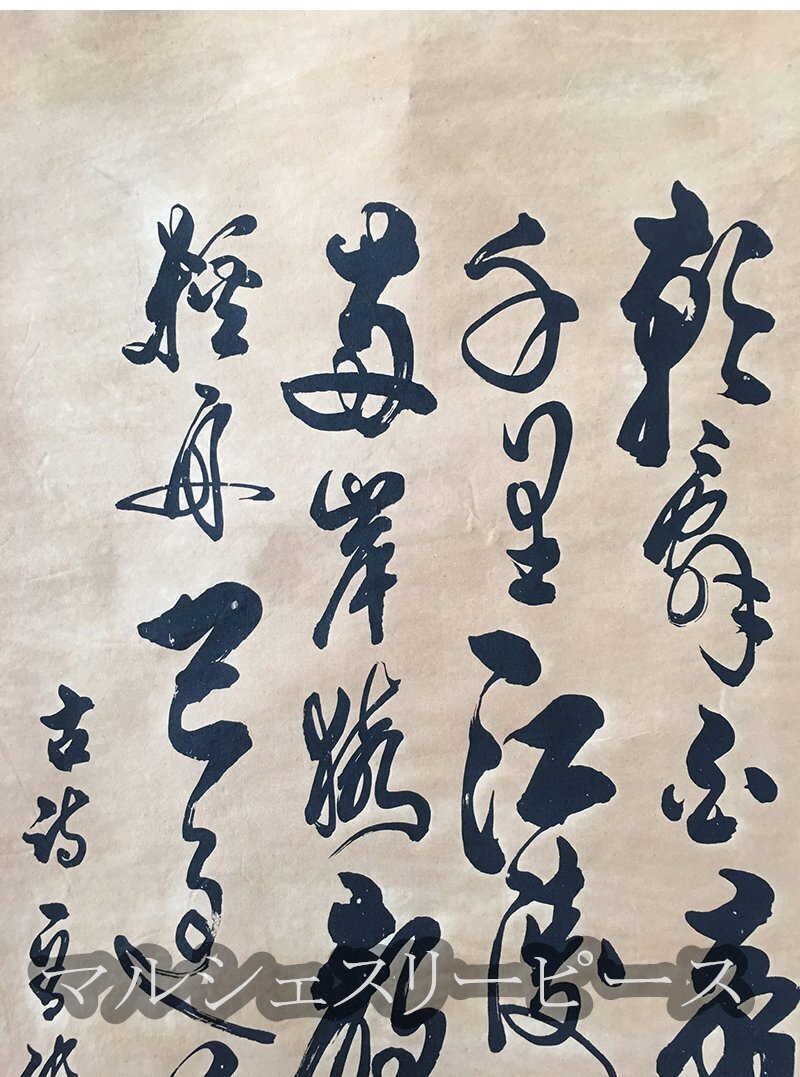 朝辭白帝
千里江陵
兩岸猿聲
輕舟已過
古詩一首
マルシェスリーピース